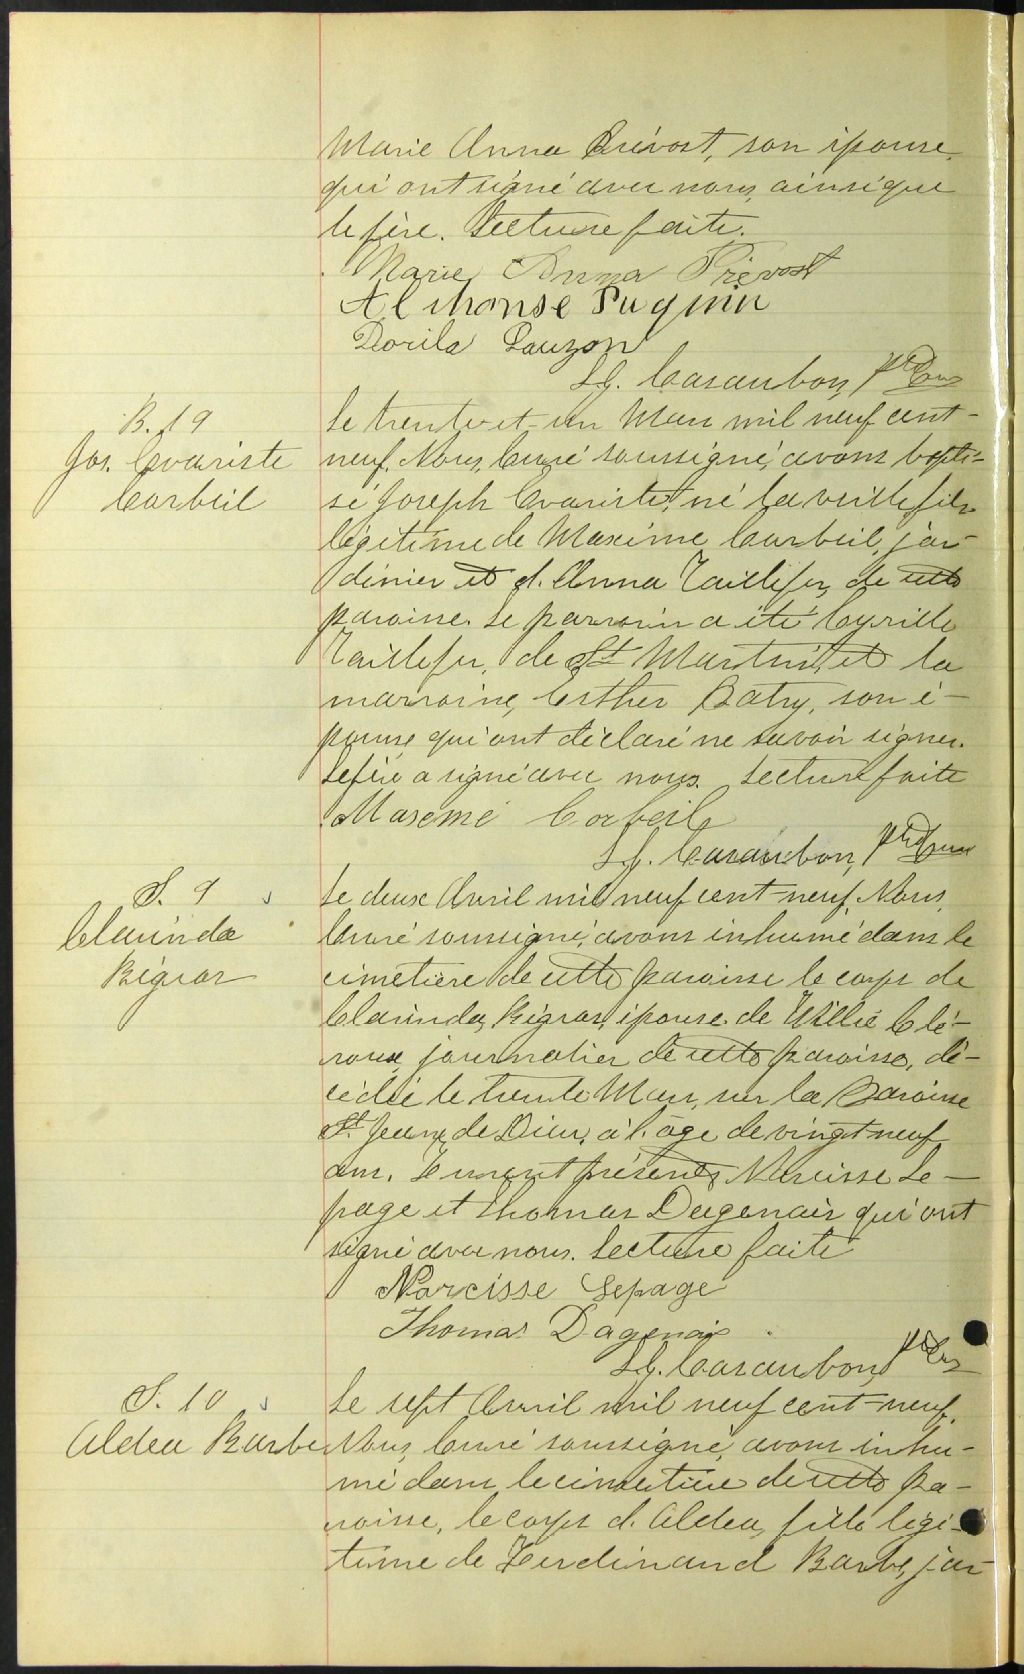 Marie Anna Prévost, son épouse,
qui ont signé avec nous, ainsi que
le père. Lecture faite.
Marie Anna Prévost
Alphonse Puquin
Dorila Lauzon
L.J. Casaubon, Ptre Curé
B. 19
Jos. Evariste
Corbeil
Le trente et un Mars mil neuf cent-
neuf, Nous, Curé soussigné, avons bapti-
sé Joseph Evariste, né la veille fils
légitime de Maxime Corbeil, jar-
dinier et d'Anna Taillefer, de cette
paroisse. Le parrain a été Cyrille
Taillefer, de St Martin, et la
marraine, Esther Batry, son é-
pouse, qui ont déclaré ne savoir signer.
Le père a signé avec nous. Lecture faite
Maseme Corbeil
L.J. Casaubon, Ptre Curé
S. 9
Clarinda
Bigras
Le deux Avril mil neuf cent-neuf, Nous,
Curé soussigné, avons inhumé dans le
cimetière de cette paroisse le corps de
Clarinda Bigras, épouse de Willié Clé-
roux, journalier de cette paroisse, dé-
cédée le trente Mars, sur la Paroisse
St Jean de Dieu, à l'âge de vingt neuf
ans. Furent présents Narcisse Le-
page et Thomas Dagenais qui ont
signé avec nous. Lecture faite
Narcisse Lepage
Thomas Dagenais
L.J. Casaubon, Ptre Curé
S. 10
Aldea Barbe
Le sept Avril mil neuf cent-neuf,
Nous, Curé soussigné, avons inhu-
mé dans le cimetière de cette pa-
roisse, le corps d'Aldea, fille légi-
time de Ferdinand Barbe, jar-